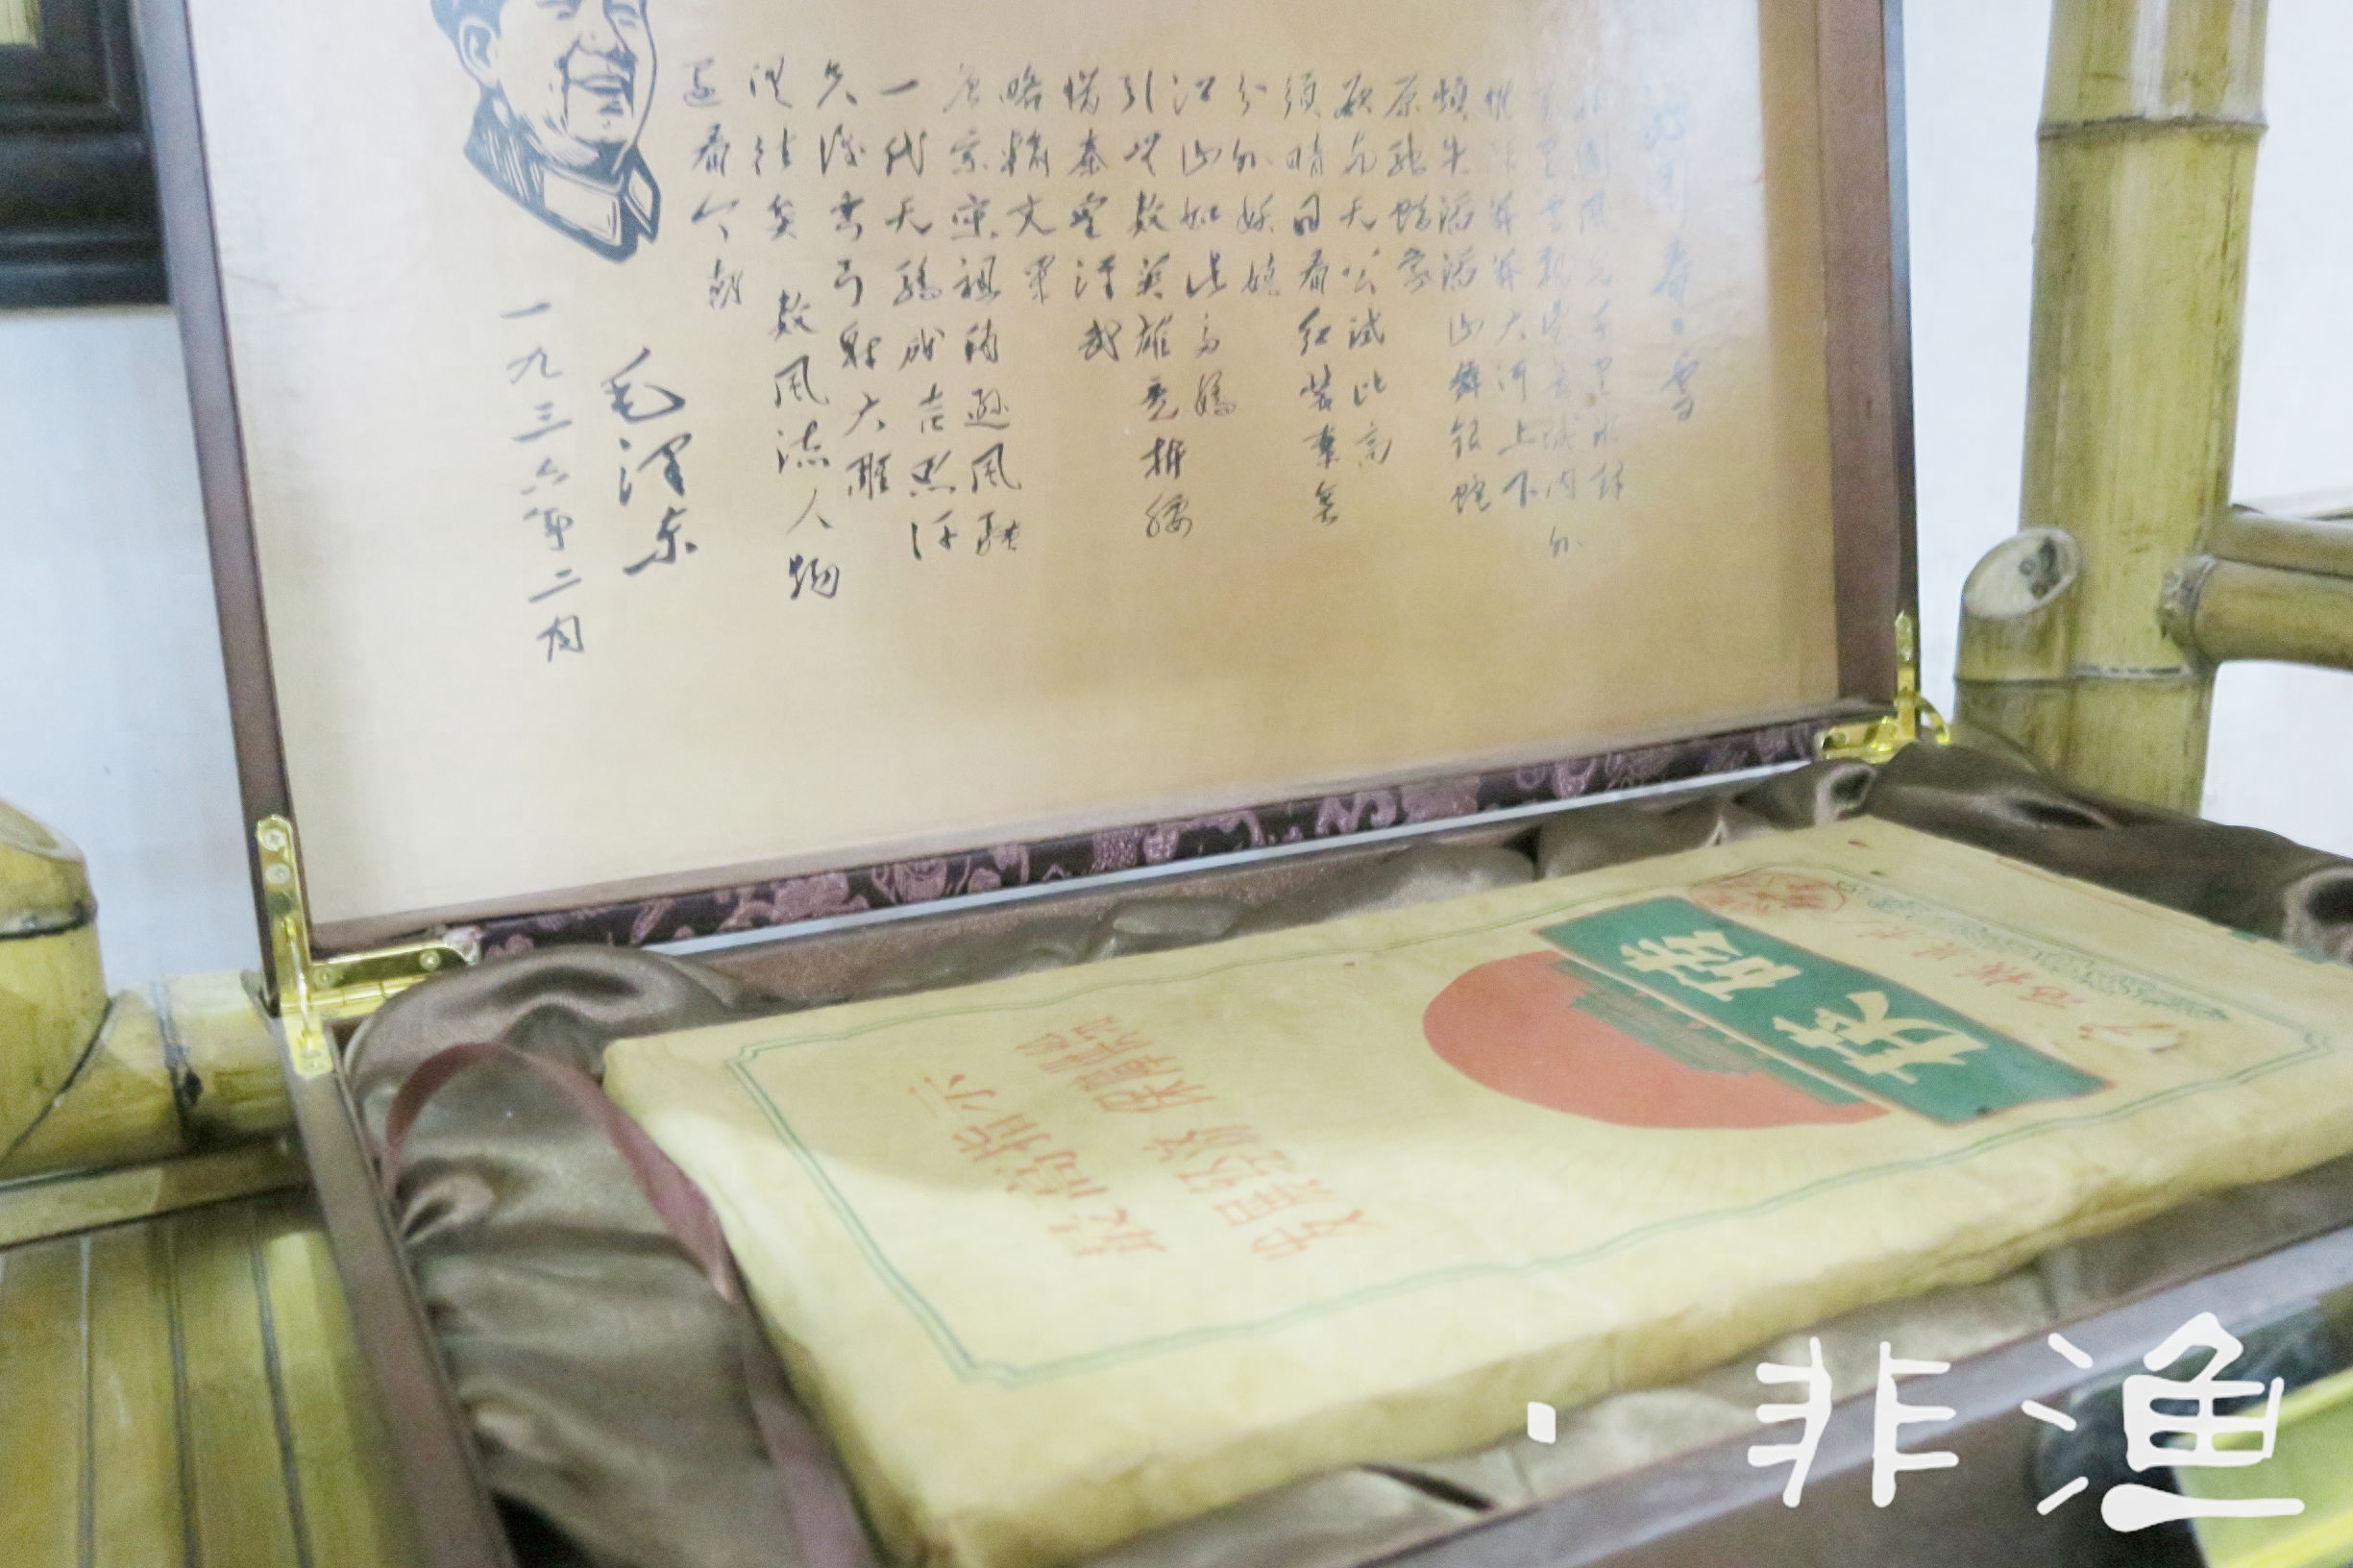 沁园春·雪
北国风光千里冰封
万里雪飘望长城内外
惟余莽莽大河上下
顿失滔滔山舞银蛇
原驰蜡象
欲与天公试比高
须晴日看红装素裹
分外妖娆
江山如此多娇
引无数英雄竞折腰
惜秦皇汉武
略输文采
唐宗宋祖稍逊风骚
一代天骄成吉思汗
只识弯弓射大雕
俱往矣 数风流人物
还看今朝
毛泽东
一九三六年二月
茯磚
最高指示
发展经济 保障供给
·非渔